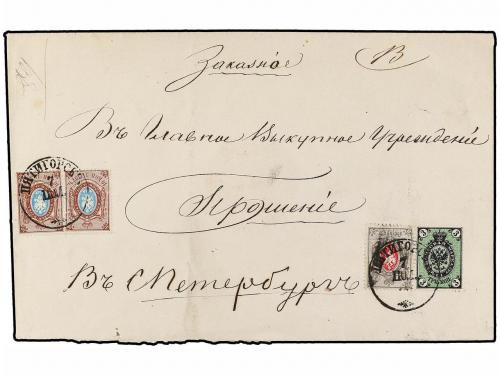 Заказное
В
Въ Главное Выкупное Учрежденіе
Прошеніе
Въ Петербургъ
ПЯТИГОРСКЪ
7
ПЯТИГО
3 3